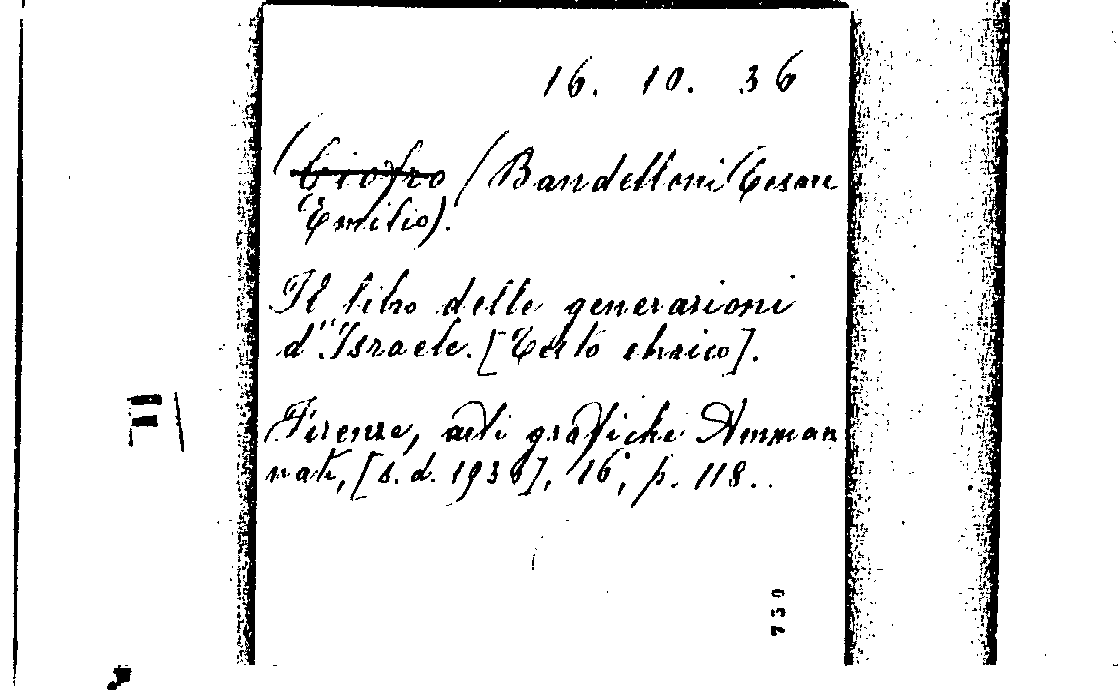 16. 10. 36
(Ciofro / Bandelloni (Cesare
Emilio).
Il libro delle generazioni
d'Israele. [Testo ebraico].
Firenze, arti grafiche Amman
nati, [s.d. 1936], 16°, p. 118..
750